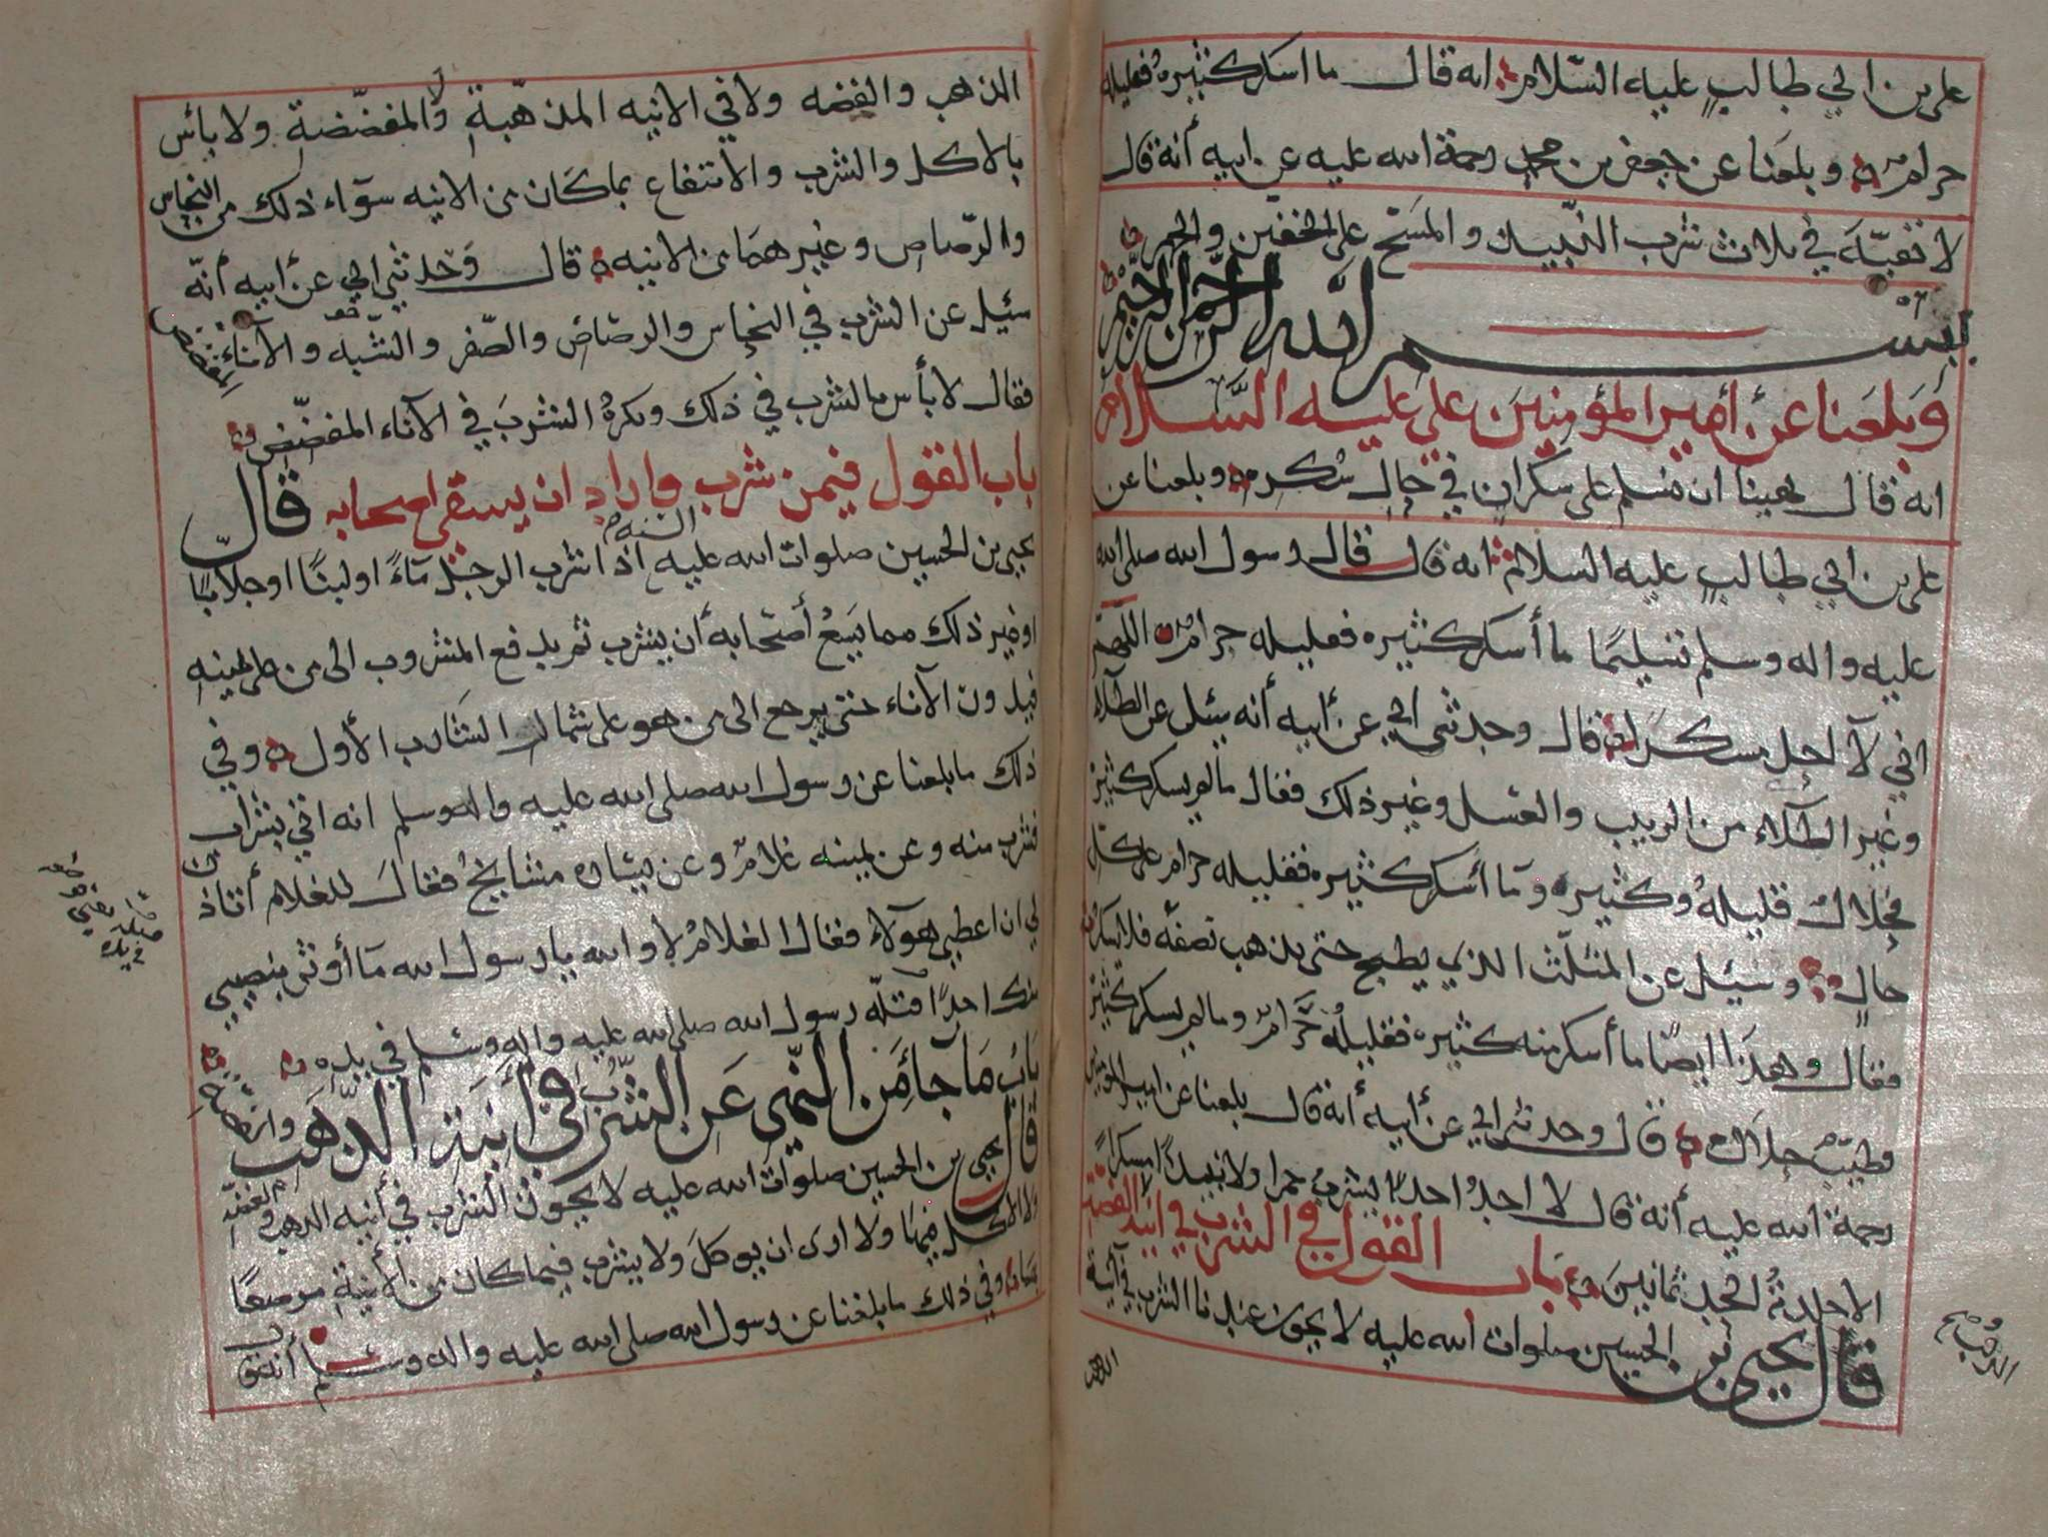 علي بن ابي طالب عليه السّلام انه قال ما اسكر كثيره فقليله
حرام وبلغنا عن جعفر بن محمد رحمة الله عليه عن ابيه أنه قال
لا تقيّة في ثلاث شرب النّبيذ والمسح على الخفين والجهر
بسم الله الرحمن الرحيم
وبلغنا عن أمير المؤمنين علي عليه السّلام
انه قال نهينا ان نسلم على سكران في حال سُكره وبلغنا عن
علي بن ابي طالب عليه السلام انه قال قال رسول الله صلى الله
عليه واله وسلم تسليمًا ما أسكر كثيره فقليله حرام اللهم
اني لآ احل مسكرًا قال وحدثني ابي عن أبيه أنه سئل عن الطلآء
وغير الطلاء من الزبيب والعسل وغير ذلك فقال ما لم يسكر كثيره
فحلال قليلهُ وكثيره وما أسكر كثيره فقليله حرام على كل
حالٍ وسُئِل عن المثلّث الذي يطبخ حتى يذهب نصفه
فقال وهذا ايضًا ما أسكر منه كثيره فقليلهُ حَرام وما لم يسكر كثيره
فطيّبٌ حلال قال وحدثني ابي عن أبيه أنه قال بلغنا عن امير المؤمنين
رحمة الله عليه أنه قال لا اجدُ احدًا يشرب خمرا ولا نبيذًا مسكراً
الا جلدتُه الحد ثمانين باب القول في الشرب في انية الفضة
قال يحيى بن الحسين صلوات الله عليه لا يجوز عندنا الشرب في آنية
الذهب
الذهب والفضه ولا في الانيه المذهّبة ولا المفضّضة ولا بائس
بالاكل والشرب والانتفاع بما كان من الانيه سوآء ذلك من النحاس
والرّصاص وغيرهما من الانيه قال وحدثني ابي عن أبيه أنّه
سئيل عن الشرب في النحاس والرصاص والصّفر والشبه والآناء مفضض
فقال لا بأس بالشرب في ذلك وبكرهُ الشرب في الآناء المفضّض
باب القول فيمن شرب واراد ان يسقي اصحابه قال
يحيى بن الحسين صلوات الله عليه السّنه اذا شرب الرجل ماءً او لبنًا او جلابًا
او غير ذلك مما يسَعُ أصحابه أن يشرب ثم يدفع المشروب الى من على يمينه
فيدون الآناء حتى يرجع الى من هو على شمال الشارب الأول وفي
ذلك ما بلغنا عن رسول الله صلى الله عليه واله وسلم انه اتي بشراب
فشرب منه وعن يمينه غلامٌ وعن يساره مشايخ فقال للغلام أتاذن
لي ان اعطي هولآء فقال الغلامُ لا والله يا رسول الله ما أوثر بنصيبي
منك احدًا فتلّه رسول الله صلى الله عليه واله وسلم في يده
باب ما جآء من النهي عن الشرب في أنية الذهب والفضة
قال يحيى بن الحسين صلوات الله عليه لا يجوز الشرب في أنيه الذهب والفضه
ولا الاكل فيها ولا ارى ان يوكل ولا يشرب فيما كان من الأنية مرصعًا
بهما وفي ذلك ما بلغنا عن رسول الله صلى الله عليه واله وسلم أنه